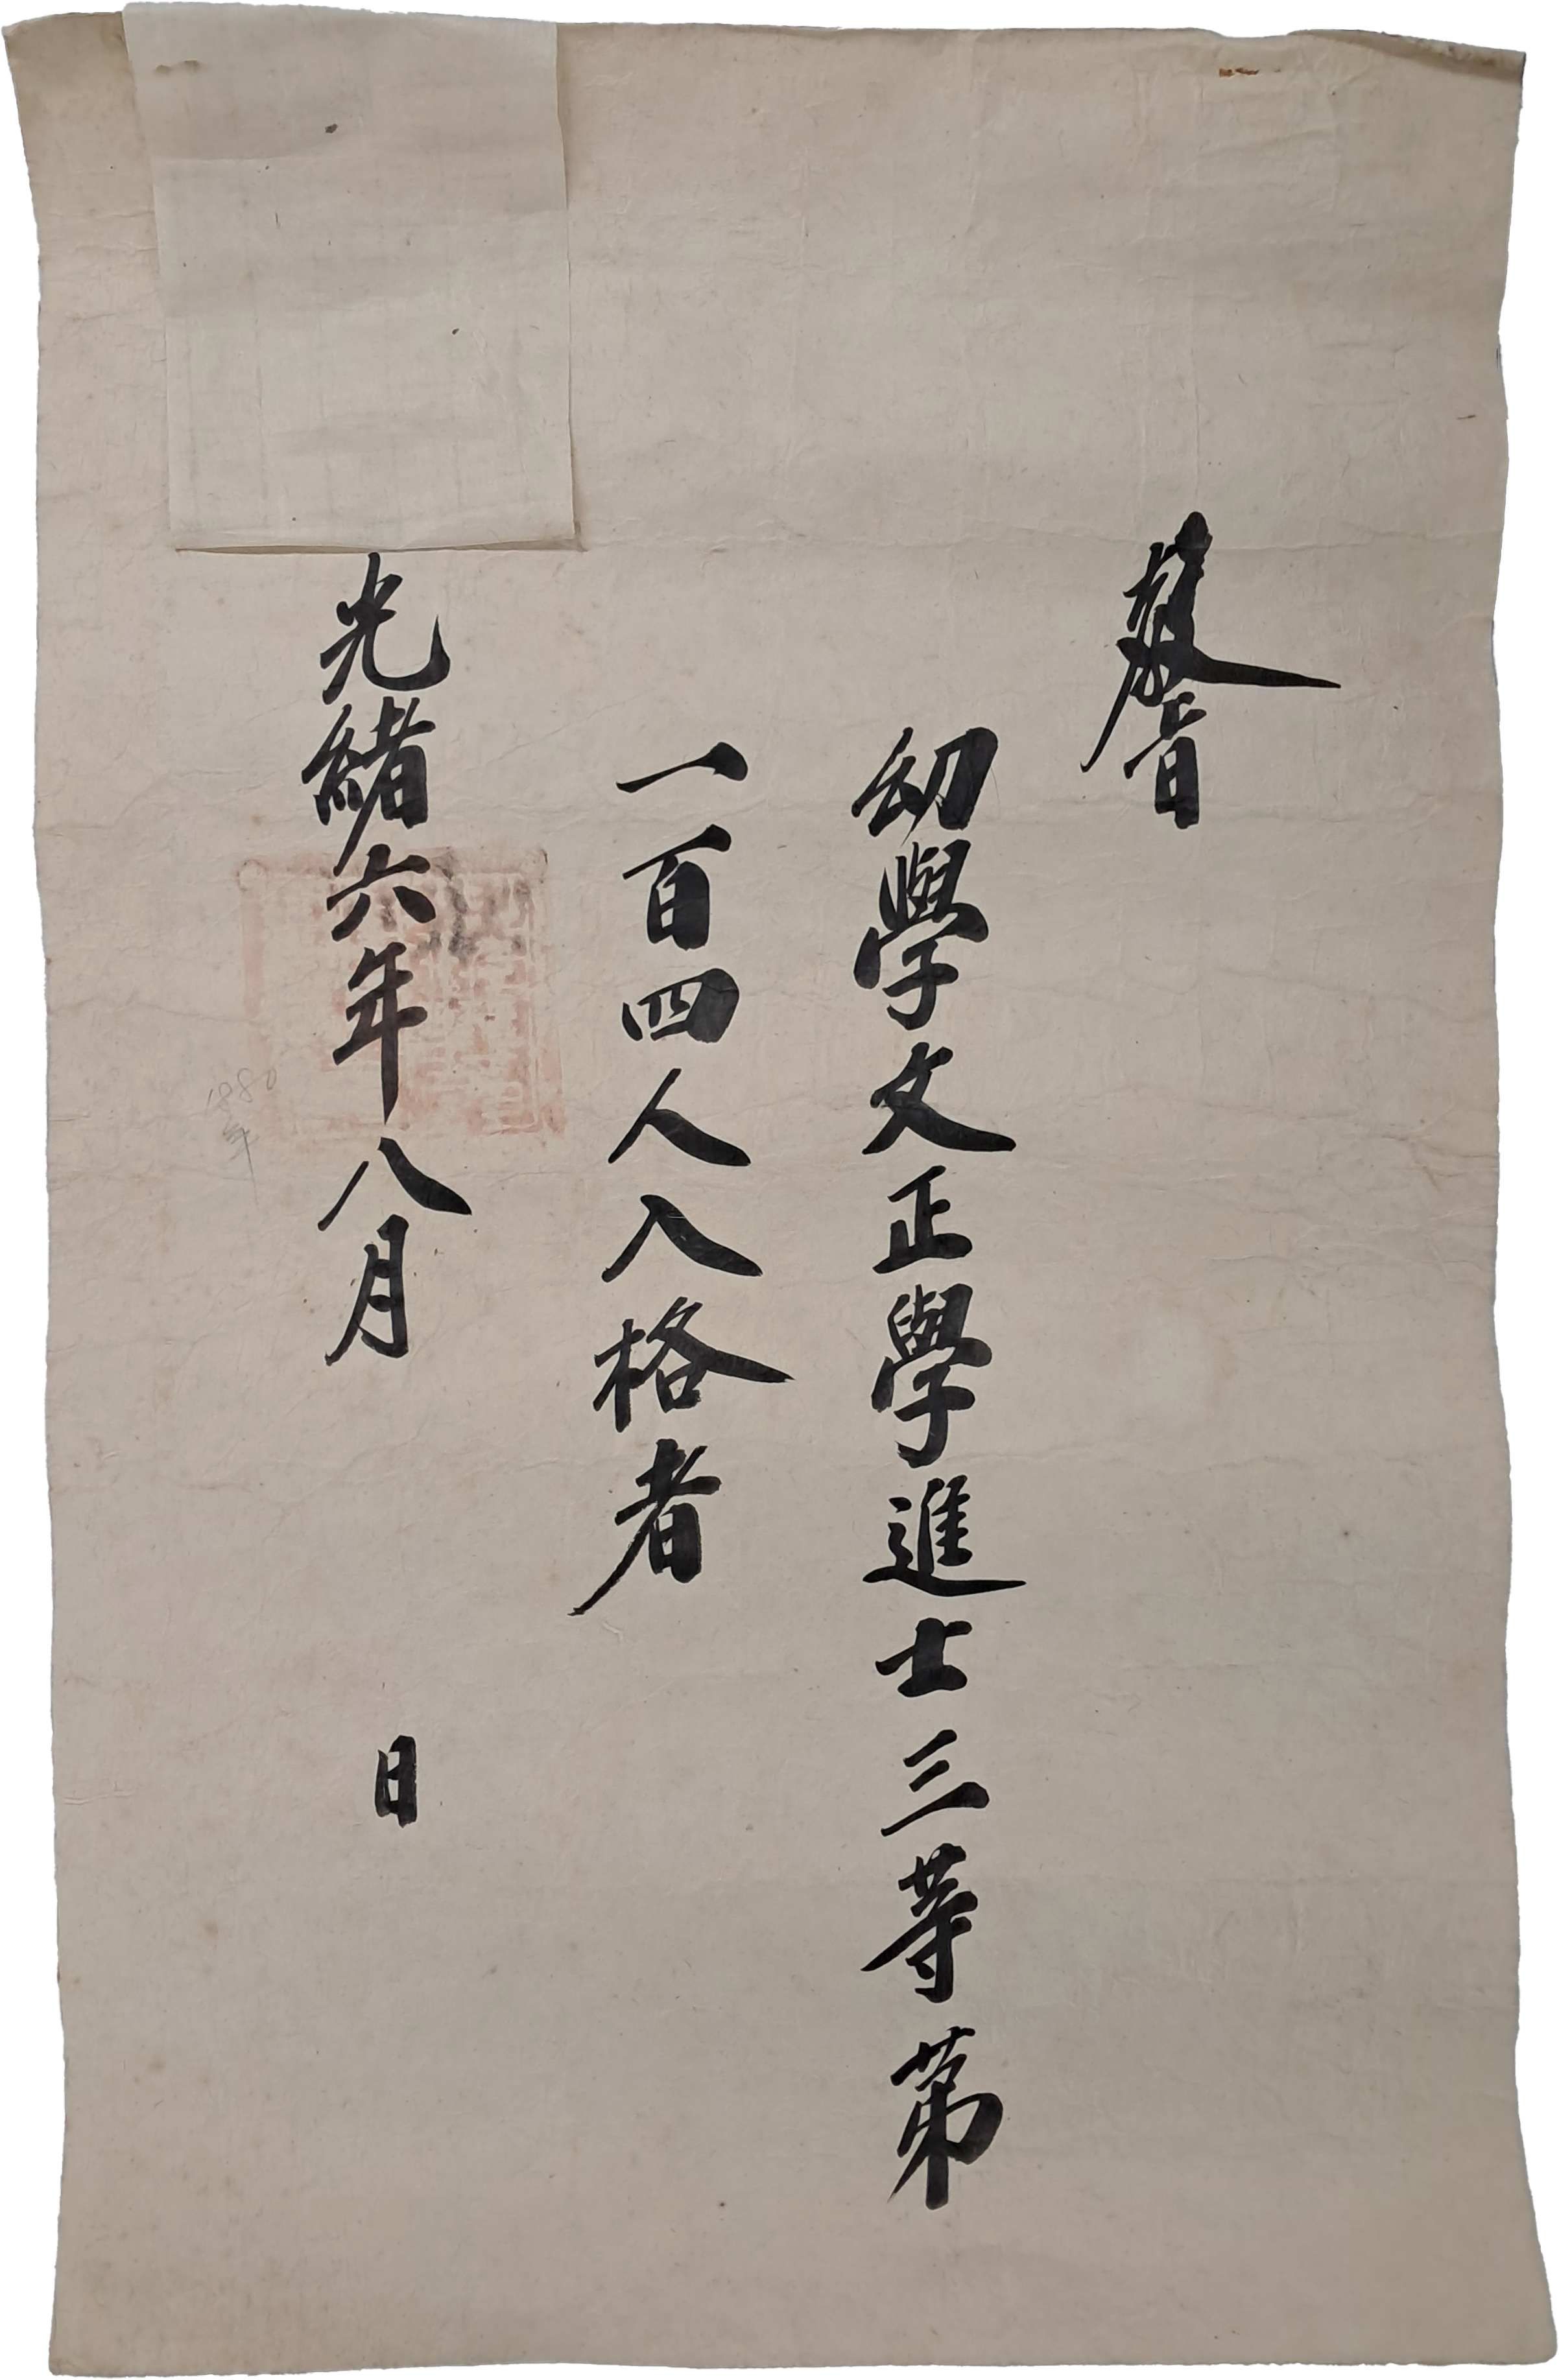 敎旨
幼學文正學進士三等第
一百四人入格者
光緒六年八月 日
1880年